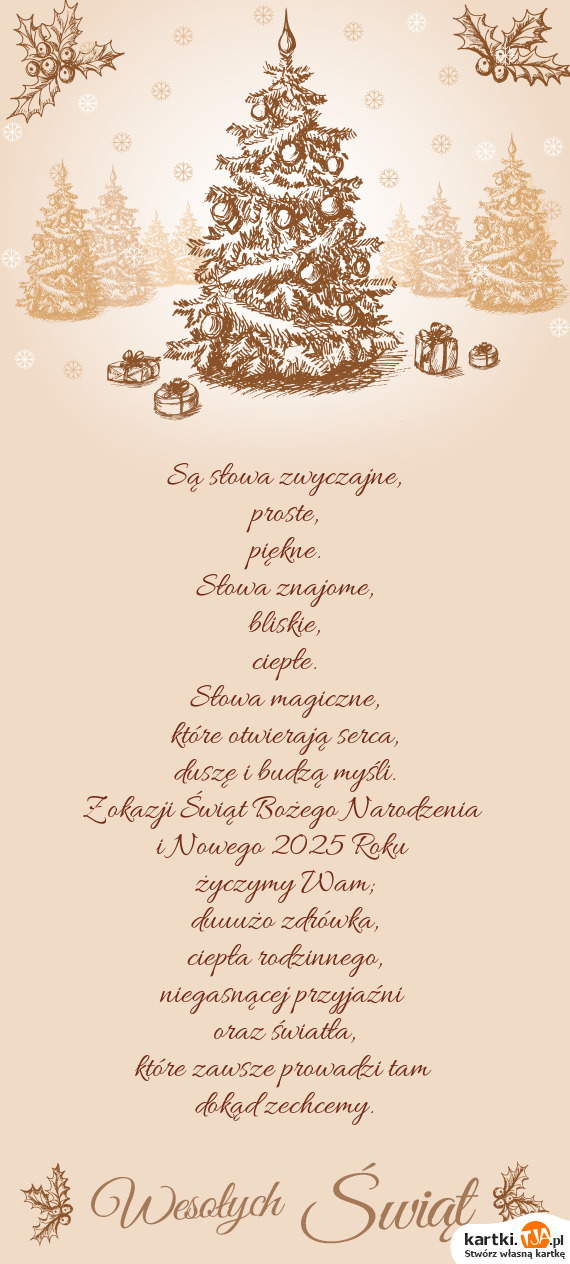 Są słowa zwyczajne,
proste,
piękne.
Słowa znajome,
bliskie,
ciepłe.
Słowa magiczne,
które otwierają serca,
duszę i budzą myśli.
Z okazji Świąt Bożego Narodzenia
i Nowego 2025 Roku
życzymy Wam;
duuużo zdrówka,
ciepła rodzinnego,
niegasnącej przyjaźni
oraz światła,
które zawsze prowadzi tam
dokąd zechcemy.
Wesołych Świąt
kartki.TJA.pl
Stwórz własną kartkę